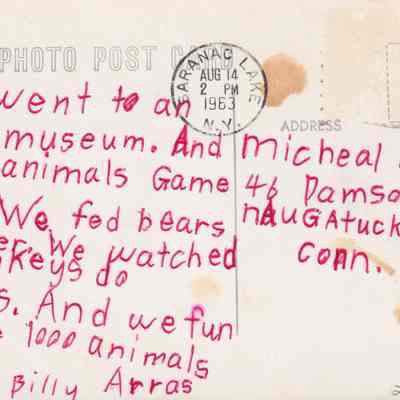 PHOTO POST CARD
SARANAC LAKE
AUG 14
2 PM
1963
N.Y.
ADDRESS
went to an
museum. And
animals Game
We fed bears
er. We watched
nkeys do
s. And we fun
e 1000 animals
Billy Arras
Micheal
46 Damso
nAUGAtuck
Conn.